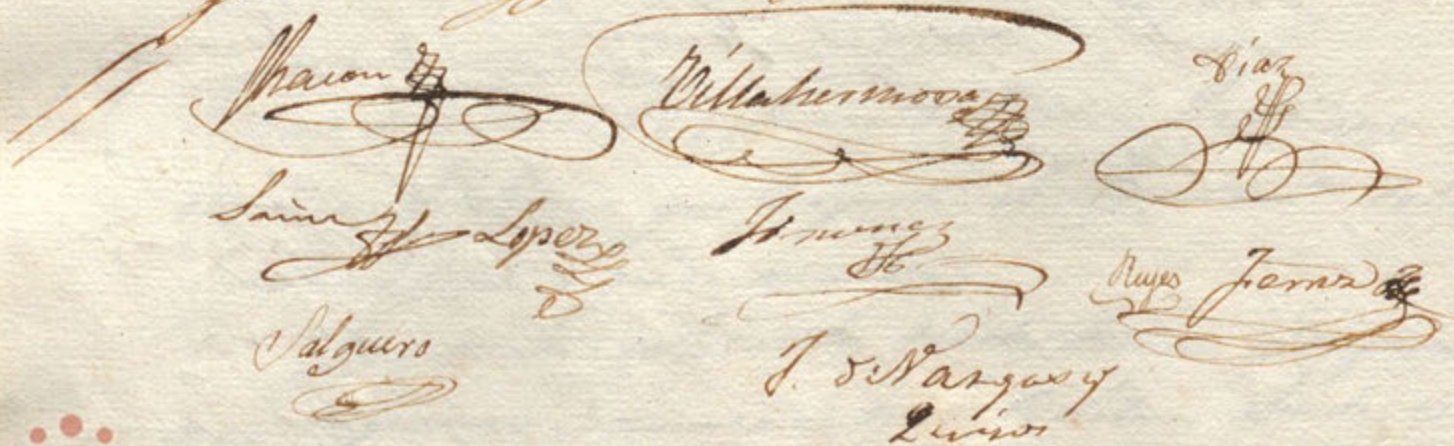 Chacon Villahermosa Diaz
Sainz Lopez Jimenez
Reyes Fernz
Salguero
J. de Vargas y
Quiros